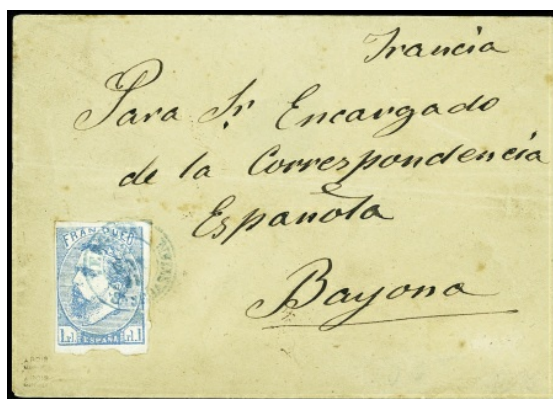 Francia
Para Sr. Encargado
de la Correspondencia
Española
Bayona
FRANQUEO
1 rl. ESPAÑA rl. 1